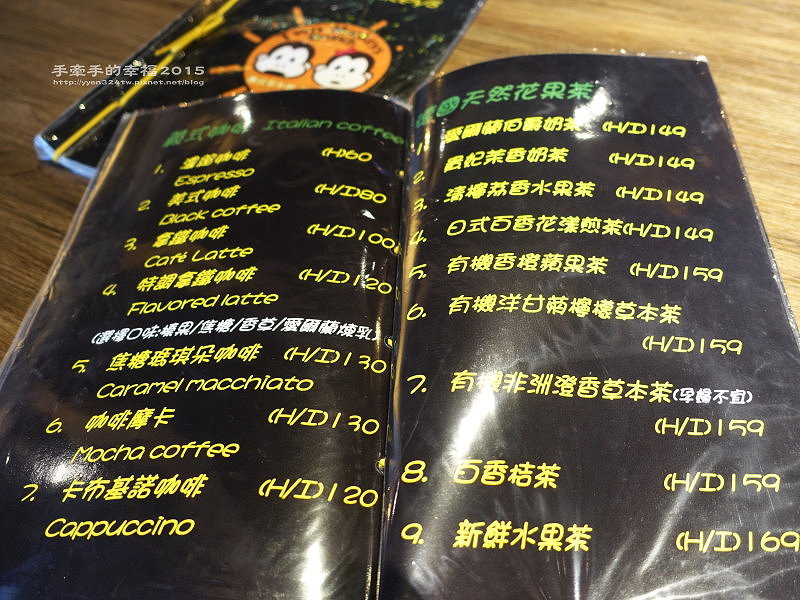 手牽手的幸福2015
http://yyen324tw.pixnet.net/blog
義式咖啡 Italian coffee
1. 濃縮咖啡 (H)60
Espresso
2. 美式咖啡 (H/I)80
Black coffee
3. 拿鐵咖啡 (H/I)100
Café Latte
4. 特調拿鐵咖啡 (H/I)120
Flavored latte
(選擇口味:榛果/焦糖/香草/愛爾蘭煉乳)
5. 焦糖瑪琪朵咖啡 (H/I)130
Caramel macchiato
6. 咖啡摩卡 (H/I)130
Mocha coffee
7. 卡布基諾咖啡 (H/I)120
Cappuccino
德國天然花果茶
1. 愛爾蘭伯爵奶茶 (H/I)149
2. 貴妃茶香奶茶 (H/I)149
3. 清檸荔香水果茶 (H/I)149
4. 日式百香花漾煎茶(H/I)149
5. 有機香橙蘋果茶 (H/I)159
6. 有機洋甘菊檸檬草本茶
(H/I)159
7. 有機非洲澄香草本茶(孕婦不宜)
(H/I)159
8. 百香桔茶 (H/I)159
9. 新鮮水果茶 (H/I)169